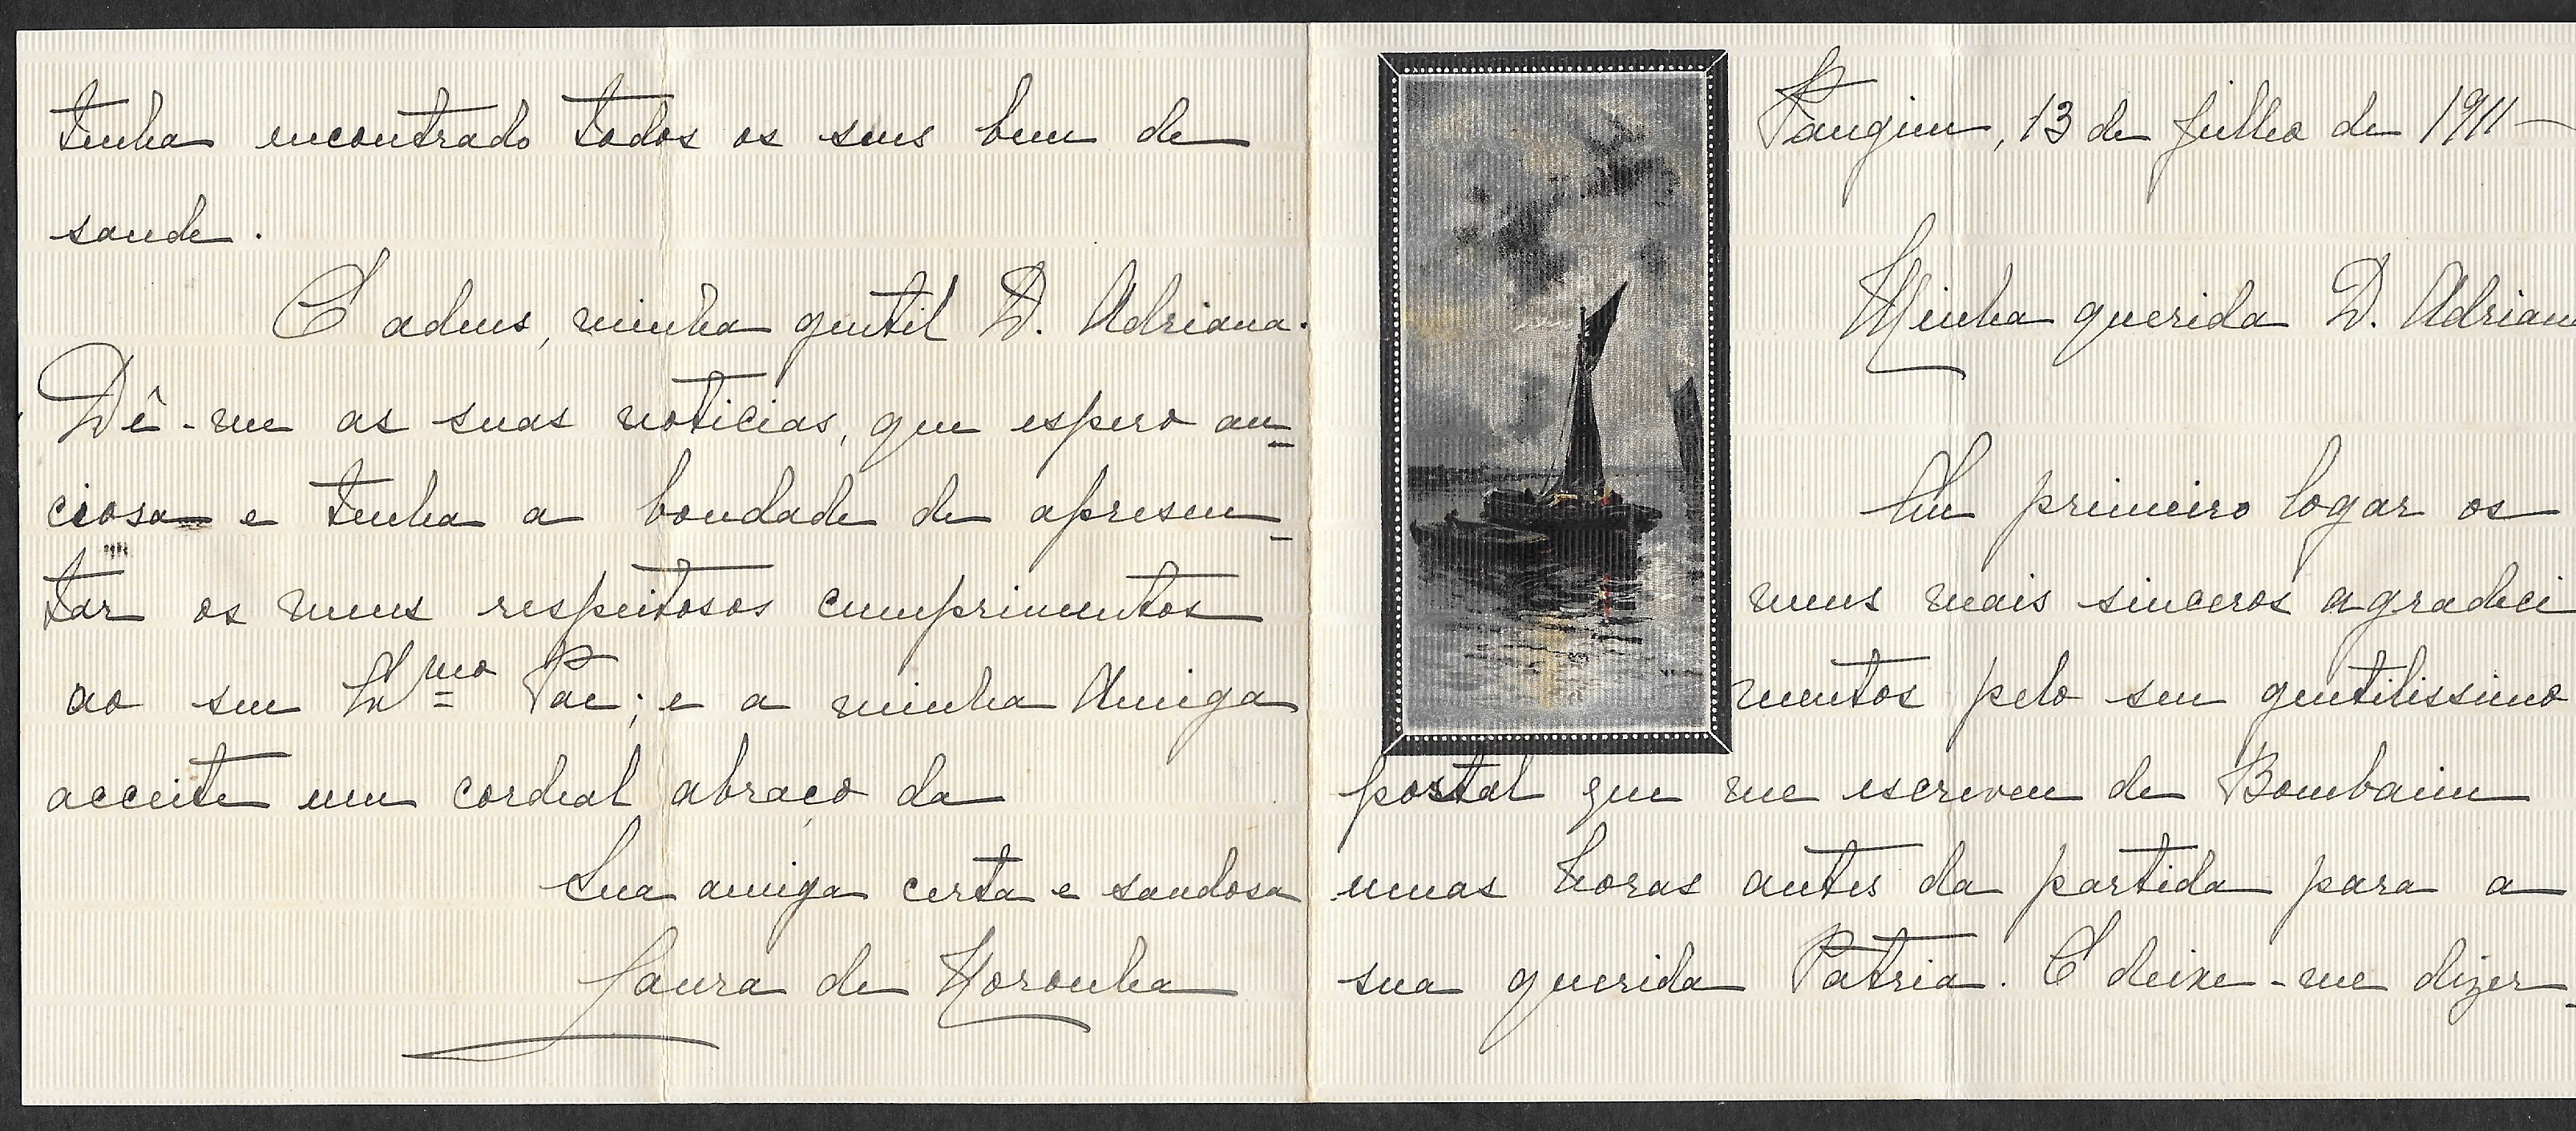 Pangim, 13 de Julho de 1911 —
Minha querida D. Adriana
Em primeiro logar os
meus mais sinceros agradeci
mentos pelo seu gentilissimo
postal que me escreveu de Bombaim
umas horas antes da partida para a
sua querida Patria. E deixe-me dizer-
tenha encontrado todos os seus bem de
saude.
E adeus, minha gentil D. Adriana.
Dê-me as suas noticias, que espero an-
ciosa e tenha a bondade de apresen-
tar os meus respeitosos cumprimentos
ao seu Exmo Pae; e a minha Amiga
acceite um cordeal abraço da
Sua amiga certa e saudosa
Laura de Noronha